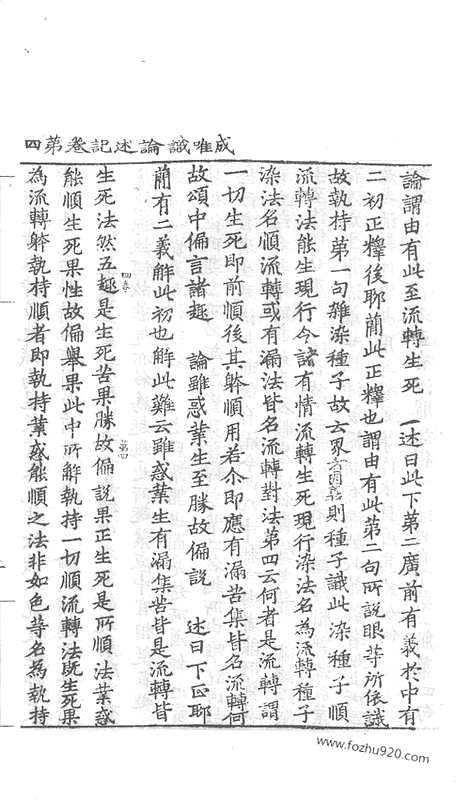 成唯識論述記卷第四
論謂由有此至流轉生死　一述曰此下第二廣前有義於中有
二初正釋後耶蕳此正釋也謂由有此第二句所說眼等所依識
故執持第一句雜染種子故云界則種子識此染種子順
流轉法能生現行令諸有情流轉生死現行染法名為流轉種子
染法名順流轉或有漏法皆名流轉對法第四云何者是流轉謂
一切生死即前順後其躰順用若尒即應有漏苦集皆名流轉何
故頌中偏言諸趣　論雖惑業生至勝故偏說　述曰下正耶
蕳有二義解此初也解此難云雖惑業生有漏集苦皆是流轉皆
生死法然五趣是生死苦果勝故偏說果正生死是所順法業惑
能順生死果性故偏舉果此中所解執持一切順流轉法既生死果
為流轉躰執持順者即執持業惑能順之法非如色等名為執持
四卷
第四
www.fozhu920.com